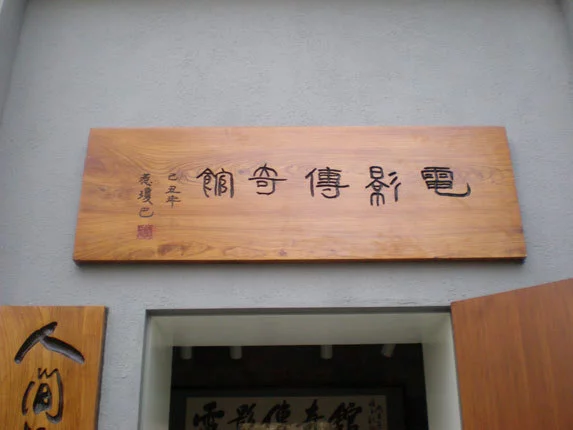 電影傳奇館
己丑年
電影傳奇館
人間